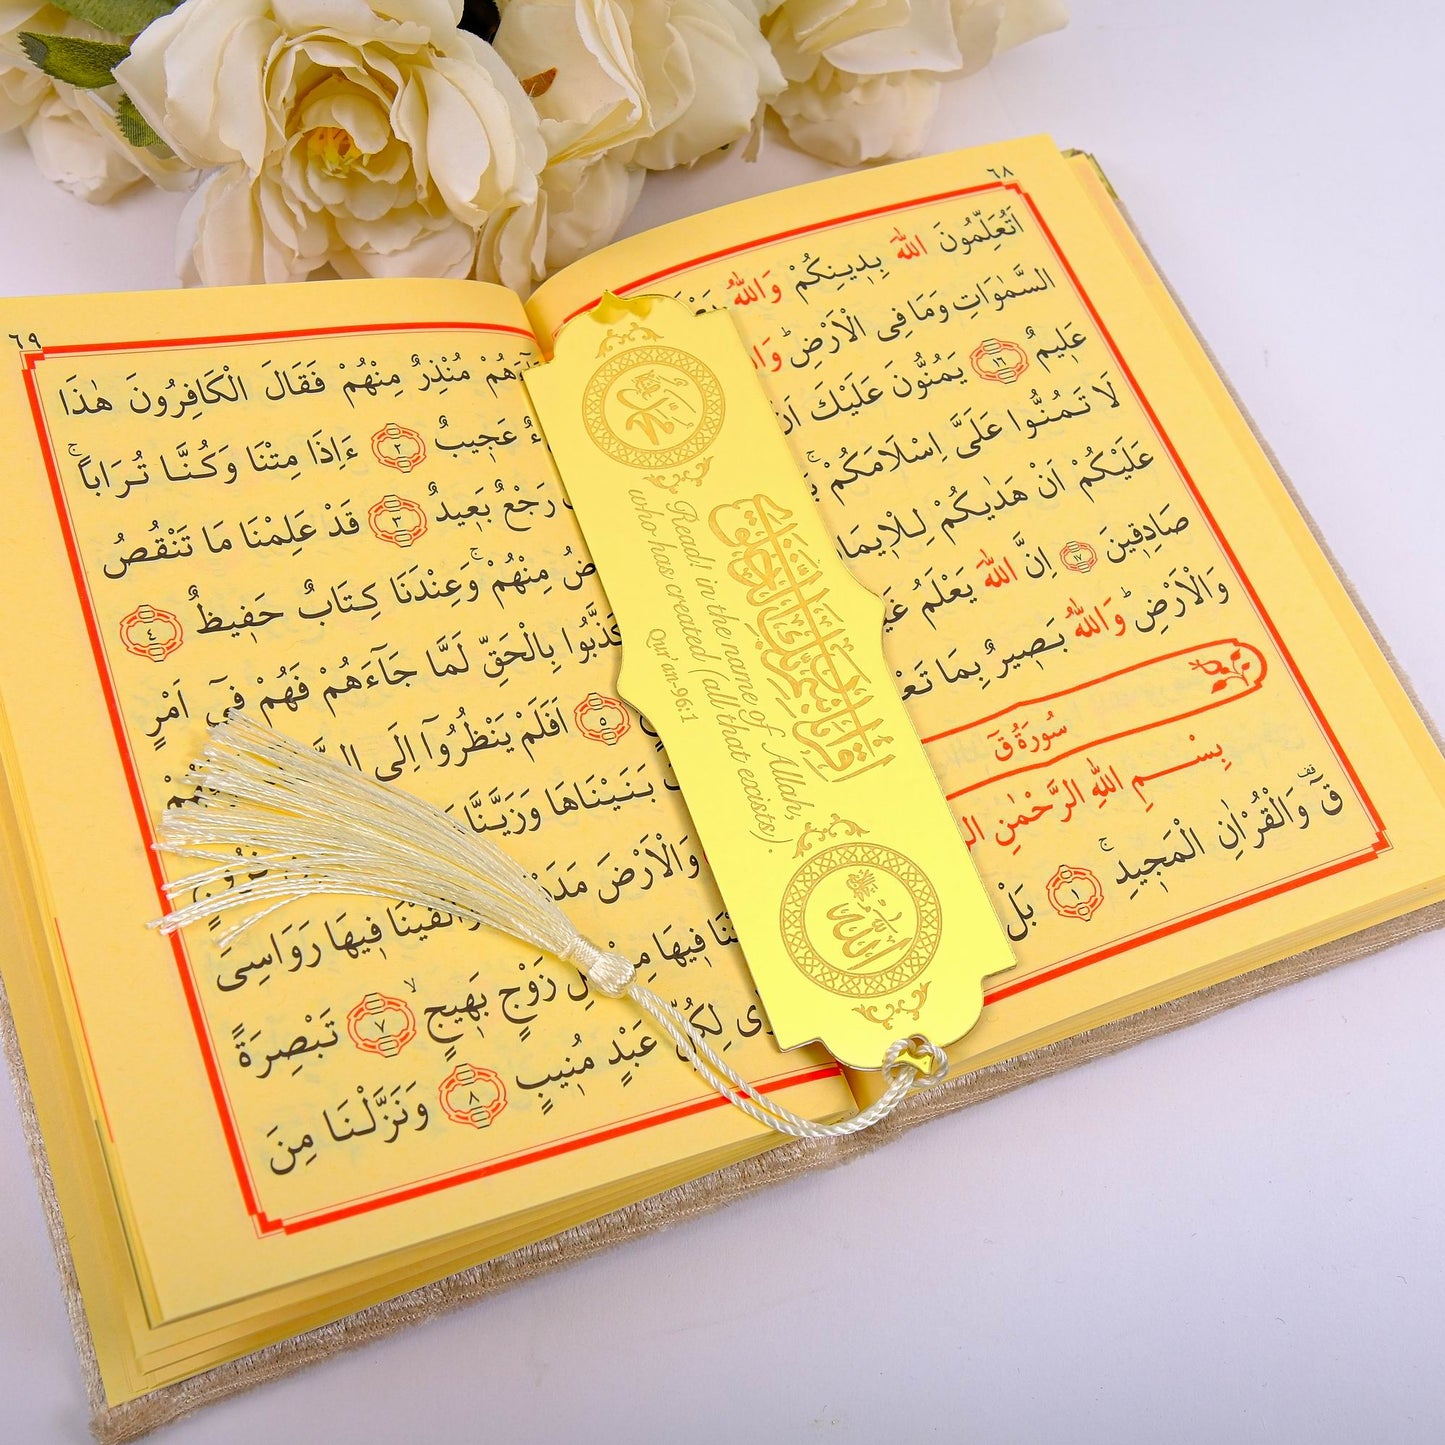 ٦٨
اَتُعَلِّمُونَ اللّٰهَ بِدِينِكُمْ وَاللّٰهُ
السَّمٰوَاتِ وَمَا فِى الْاَرْضِۜ
عَلِيمٌ ﴿١٦﴾ يَمُنُّونَ عَلَيْكَ اَنْ
لَا تَمُنُّوا عَلَىَّ اِسْلَامَكُمْۚ
عَلَيْكُمْ اَنْ هَدٰيكُمْ
صَادِقِينَ ﴿١٧﴾ اِنَّ اللّٰهَ يَعْلَمُ
وَالْاَرْضِۜ وَاللّٰهُ بَصِيرٌ بِمَا
سُورَةُ قٓ
بِسْــــمِ اللّٰهِ الرَّحْمٰنِ
قٓ وَالْقُرْاٰنِ الْمَجِيدِۚ ﴿١﴾ بَلْ
٦٩
مُنْذِرٌ مِنْهُمْ فَقَالَ الْكَافِرُونَ هٰذَا
عَجِيبٌ ﴿٢﴾ ءَاِذَا مِتْنَا وَكُنَّا تُرَاباًۚ
رَجْعٌ بَعِيدٌ ﴿٣﴾ قَدْ عَلِمْنَا مَا تَنْقُصُ
مِنْهُمْۚ وَعِنْدَنَا كِتَابٌ حَفِيظٌ ﴿٤﴾
كَذَّبُوا بِالْحَقِّ لَمَّا جَٓاءَهُمْ فَهُمْ فِٓى اَمْرٍ
﴿٥﴾ اَفَلَمْ يَنْظُرُٓوا اِلَى
بَنَيْنَاهَا وَزَيَّنَّا
وَالْاَرْضَ
فِيهَا رَوَاسِىَ
فِيهَا زَوْجٍ بَهِيجٍۙ ﴿٧﴾ تَبْصِرَةً
لِكُلِّ عَبْدٍ مُنِيبٍ ﴿٨﴾ وَنَزَّلْنَا مِنَ
محمد
اقرأ باسم ربك الذي خلق
Read! in the name of Allah,
who has created (all that exists).
Qur'an-96:1
الله